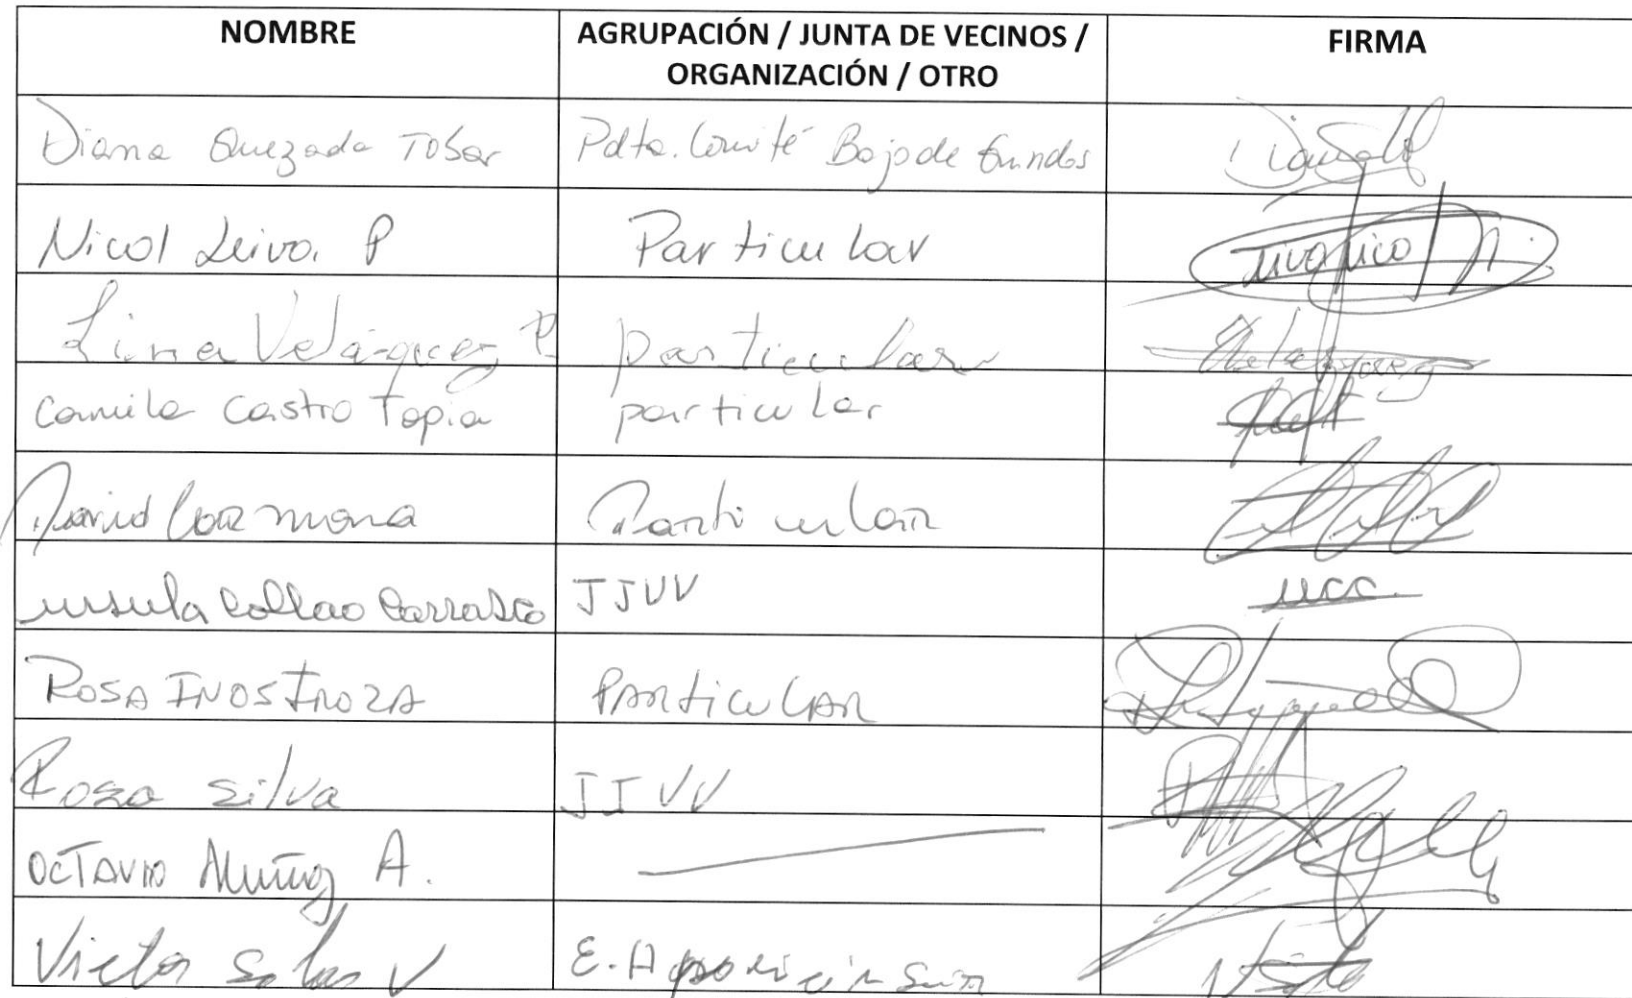 NOMBRE
AGRUPACIÓN / JUNTA DE VECINOS /
ORGANIZACIÓN / OTRO
FIRMA
Diana Quezada Tobar
Pdta. Comité Bajo de
Nicol Leiva. P
Particular
Lina Velázquez P
particular
Camila Castro Tapia
particular
David Carmona
Particular
ursula Collao Carrasco
JJVV
ucc.
ROSA INOSTROZA
PARTICULAR
Rosa Silva
JJVV
OCTAVIO Muñoz A.
Victor Salas V